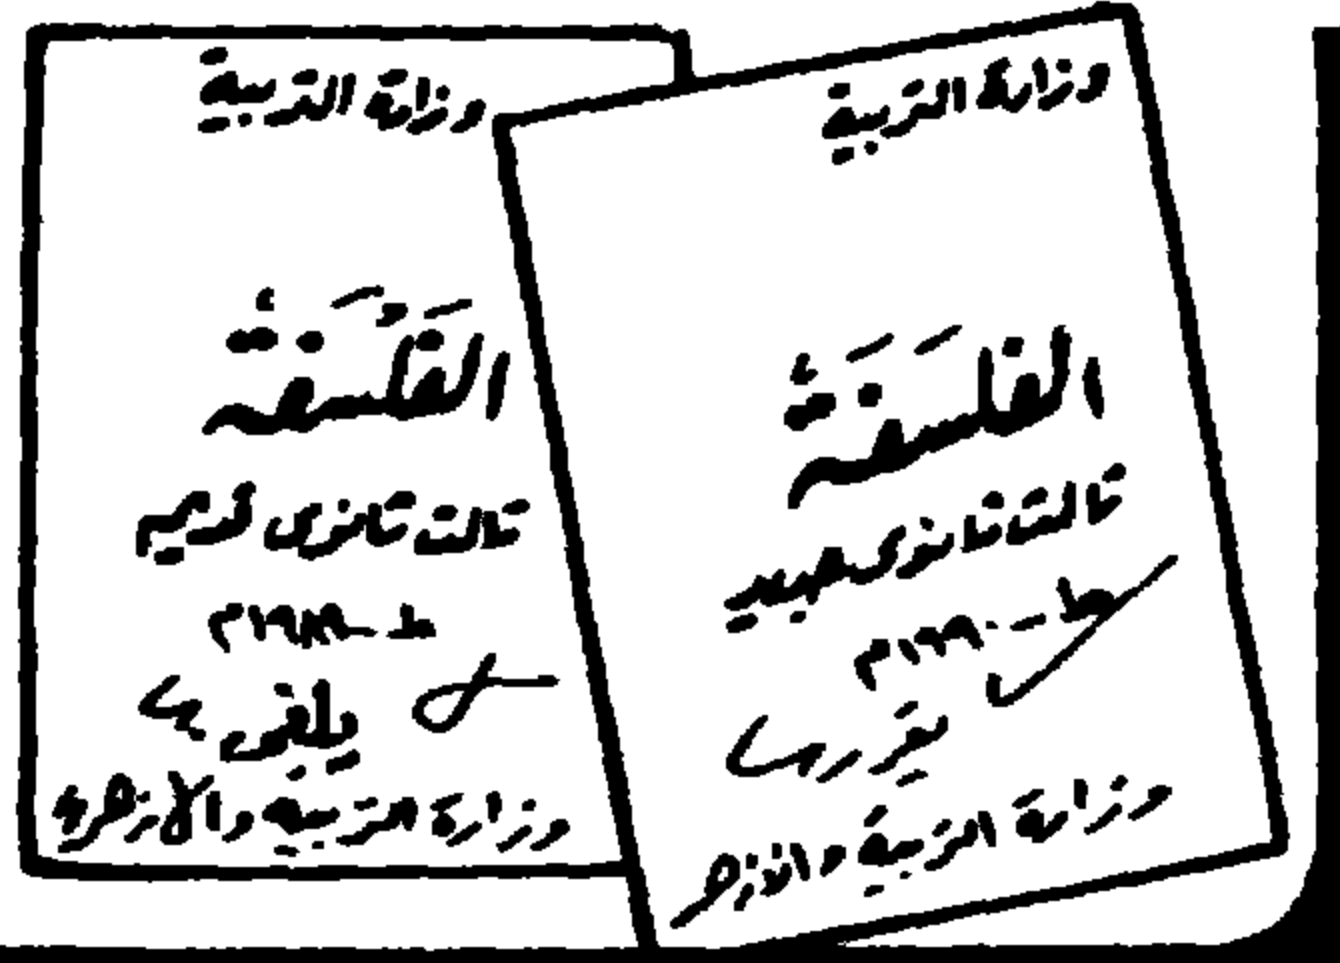 وزارة التربية
الفلسفة
ثالث ثانوى جديد
ط - ١٩٩٠م
يقرر
وزارة التربية والأزهر
وزارة التربية
الفلسفة
ثالث ثانوى قديم
ط - ١٩٨٩م
يلغى
وزارة التربية والأزهر